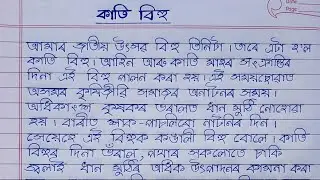 কাতি বিহু
আমাৰ জাতীয় উৎসৱ বিহু তিনিটা। তাৰে এটা হ'ল
কাতি বিহু। আহিন আৰু কাতি মাহৰ সংক্ৰান্তিৰ
দিনা এই বিহু পালন কৰা হয়। এই সময়ছোৱাত
অসমৰ কৃষিজীৱি সমাজৰ অনাটনৰ সময়।
অধিকাংশ কৃষকৰ ভঁৰালত ধান মুঠি নোহোৱা
হয়। বাৰীত শাক-পাচলিৰো নাটনিৰ দিন।
সেয়েহে এই বিহুক কঙালী বিহু বোলে। কাতি
বিহুৰ দিনা ভঁৰাল, পথাৰ সকলোতে চাকি
জ্বলাই ধান মুঠিৰ অধিক উৎপাদনৰ কামনা কৰা
Date
Page